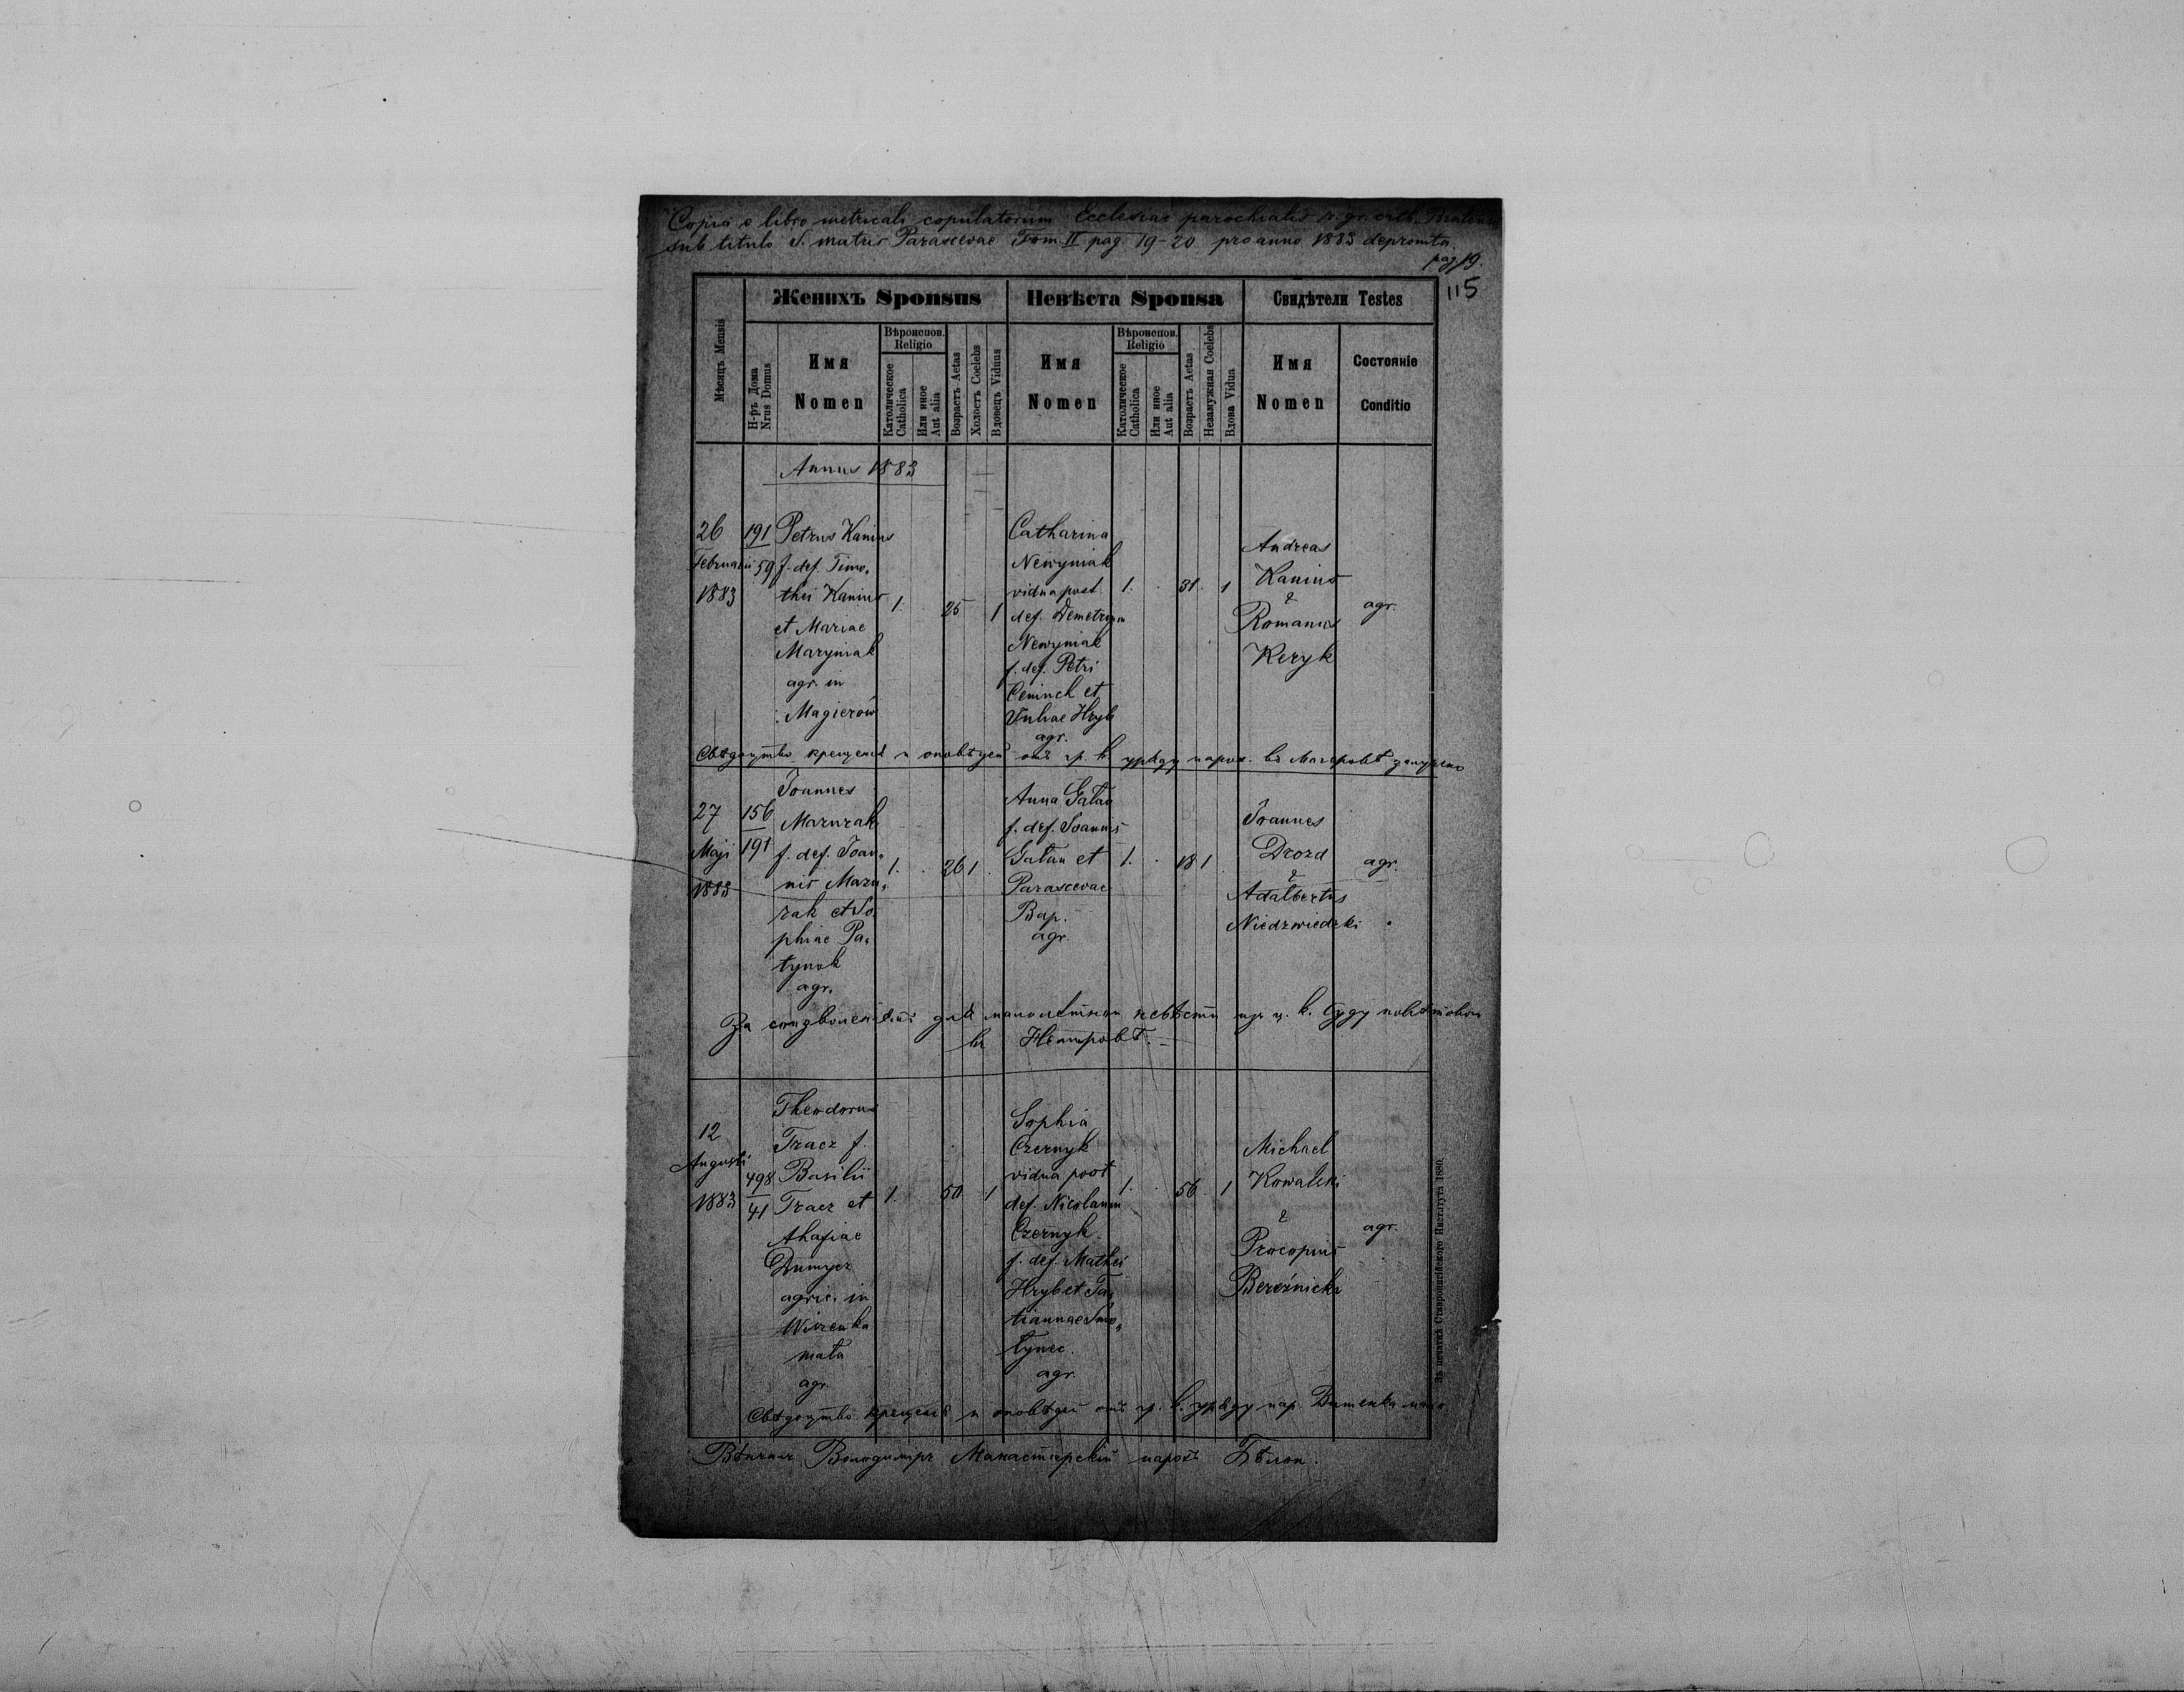 Copia e libro metricali copulatorum Ecclesiae parochialis r. gr. cath.
sub titulo S. matris Parascevae Tom II pag. 19-20 pro anno 1883 deprom̄ta.
pag 19.
115
Женихъ Sponsus
Невѣста Sponsa
Свидѣтели Testes
Мѣсяцъ Mensis
Н-ръ Дома
Nrus Domus
Имя
Nomen
Вѣроиспов.
Religio
Католическое
Catholica
Или иное
Aut alia
Возрастъ Aetas
Холостъ Coelebs
Вдовецъ Viduus
Имя
Nomen
Вѣроиспов.
Religio
Католическое
Catholica
Или иное
Aut alia
Возрастъ Aetas
Незамужная Coelebs
Вдова Vidua
Имя
Nomen
Состояніе
Conditio
Annus 1883
26
Februarii
1883
191
59
Petrus Kanius
f. def. Timo-
thei Kanius
et Mariae
Maryniak
agr. in
Magierow
1. 25 1
Catharina
Newyniak
vidua post
def. Demetrium
Newyniak
f. def. Petri
et
Juliae Hryb
agr.
1. 31. 1
Andreas
Kanius
&
Romanus
Keryk
agr.
крещенія и оповѣдей отъ гр. к. уряду парох. въ Магеровѣ
27
Maji
1883
156
191
Joannes
Mazurak
f. def. Joan-
nis Mazu-
rak et So-
phiae Pa-
tynok
agr.
1. 26 1
Anna Gałan
f. def. Joannis
Gałan et
Parascevae
Bap.
agr.
1. 18 1
Joannes
Drozd
&
Adalbertus
Niedzwiedzki
agr.
За для малолѣтной невѣсты ц. к. Суду повѣтовом
въ Немировѣ.
12
Augusti
1883
498
41
Theodorus
Tracz f.
Basilii
Tracz et
Ahafiae
Dumycz
agric. in
Wiszenka
mała
agr.
1. 50 1
Sophia
Czernyk
vidua post
def. Nicolaum
Czernyk
f. def. Mathei
Hryb et Ta-
tiannae Smo-
tynec.
agr.
1. 56. 1
Michael
Kowalski
&
Procopius
Bereźnicki
agr.
крещенія и оповѣдей отъ гр. к. уряду пар. Вишенка мала
Вѣнчалъ Володиміръ Манастирскій парохъ
Въ печатнѣ Ставропигійского Института 1880.